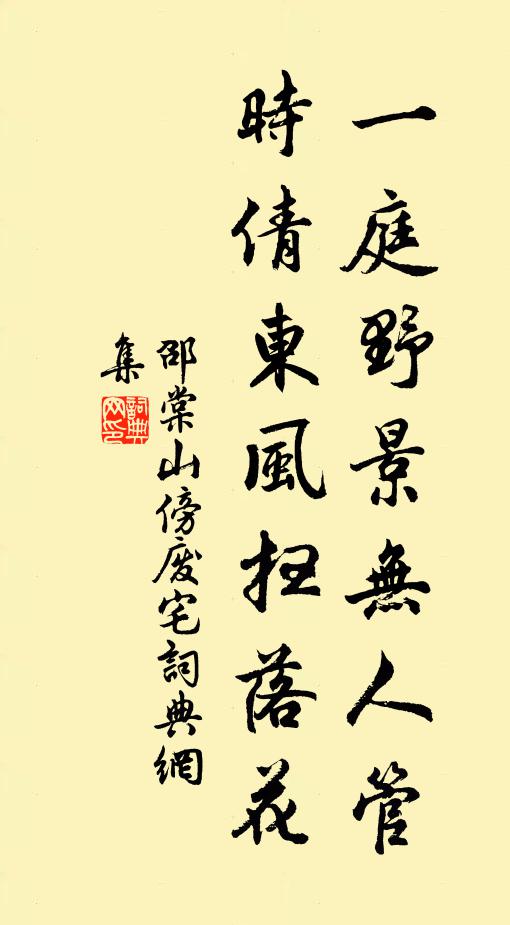 一庭野景無人管
時倩東風扫落花
邵棠山傍廢宅詞典網
集
詞典
网印